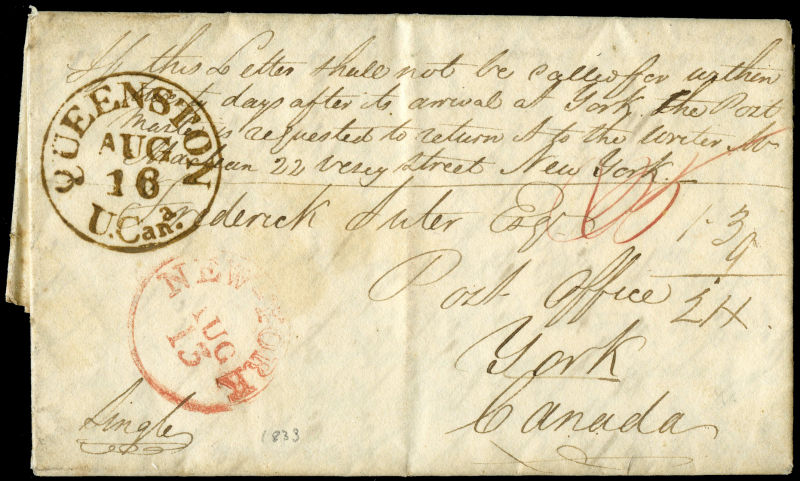 If this Letter shall not be called for within
twenty days after its arrival at York, the Post
Master is requested to return it to the writer Mr
22 Vesey Street New York.
Frederick Suter Esqr
Post Office
York
Canada
Single
QUEENSTON
AUG
16
U.Cana.
NEW-YORK
AUG
13
25
1-3
9
1833